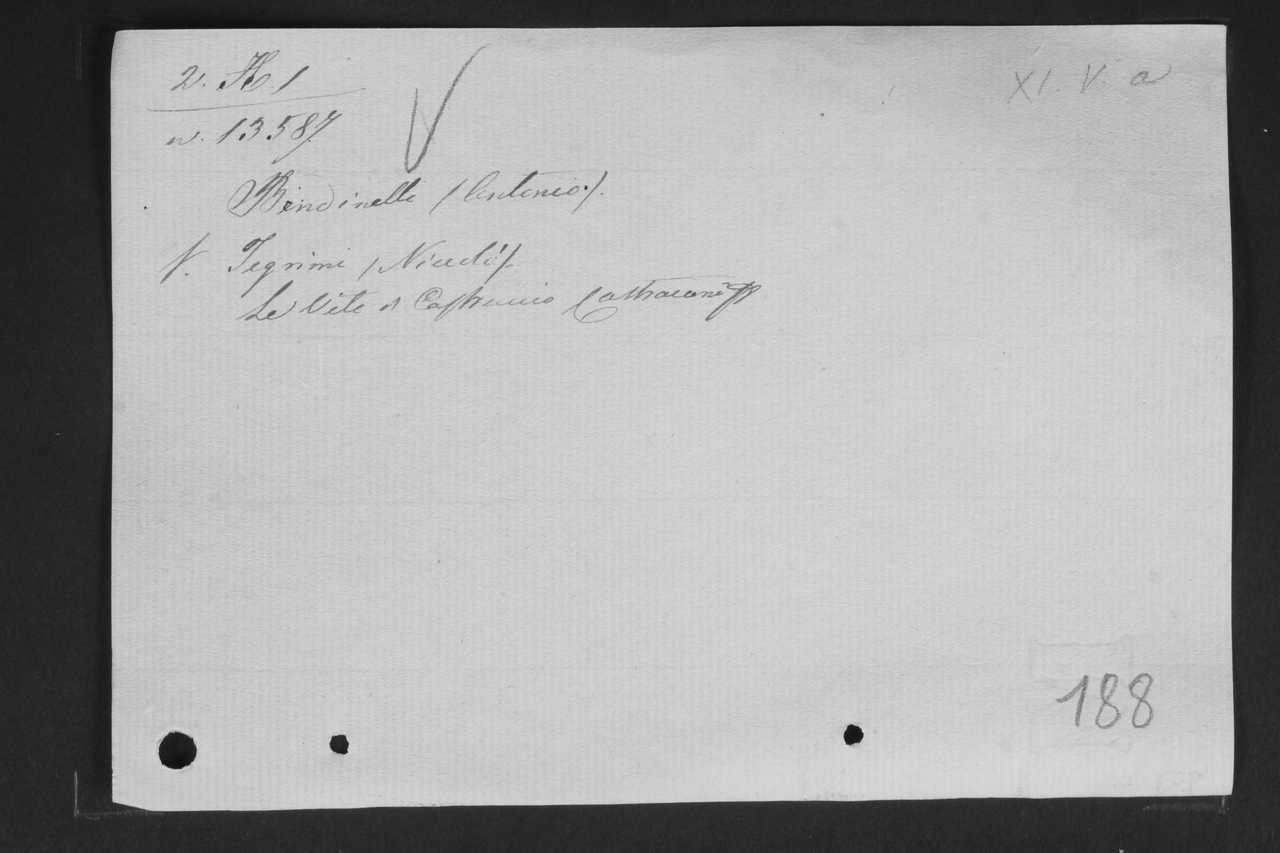 2. H. 1
XI. V. a
n. 13587.
Bendinelli (Antonio).
V. Tegrimi (Nicolò).
Le Vite di Castruccio Castracani
188